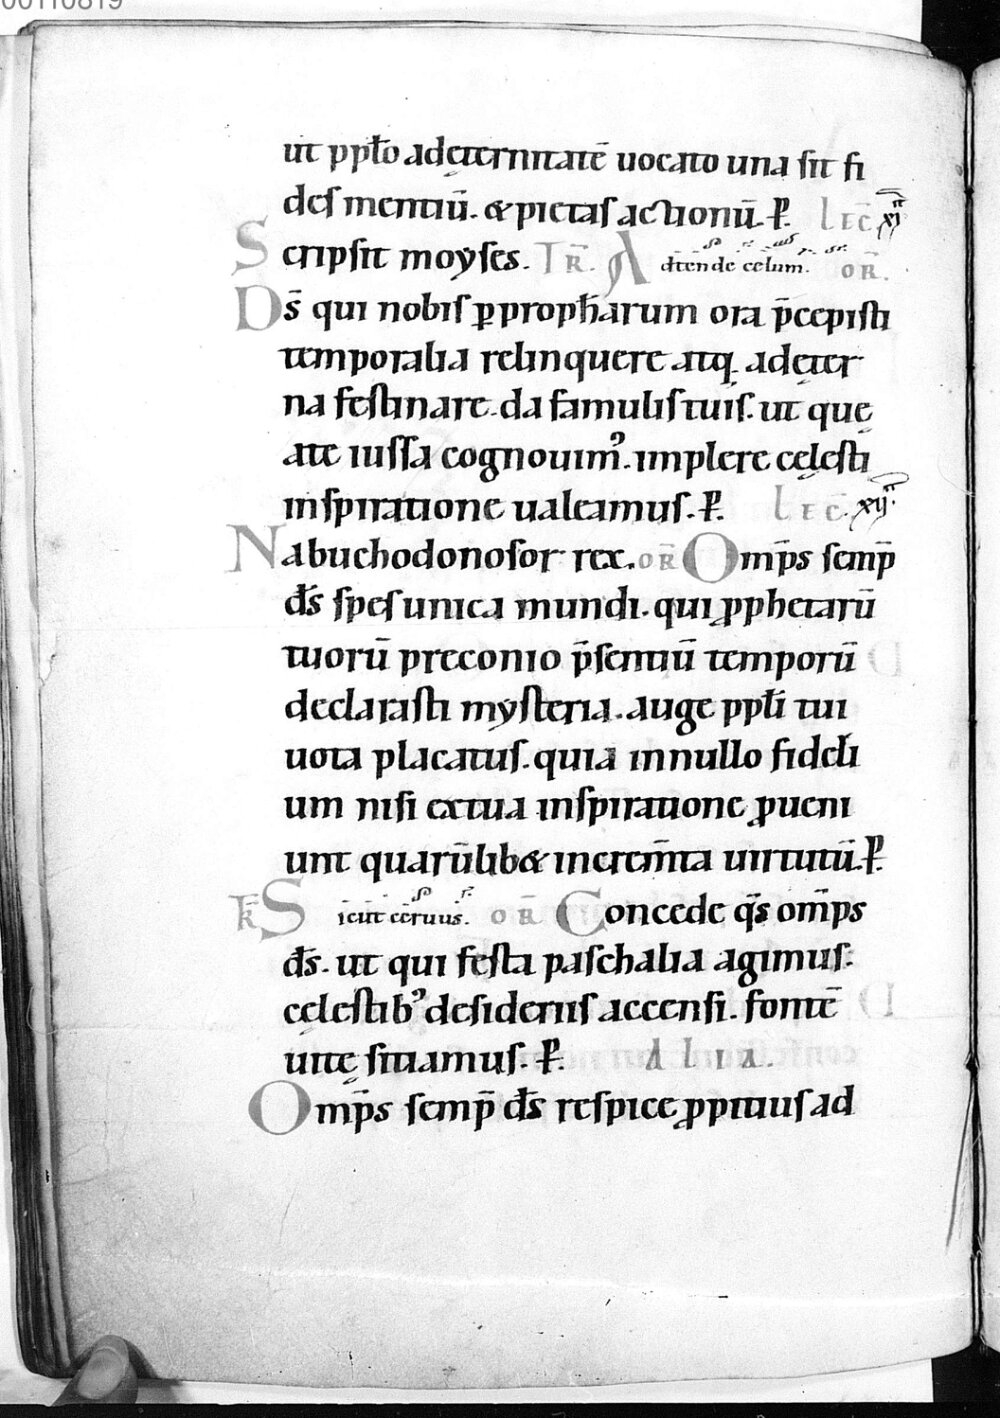 00110819
ut ppło adęternitatē uocato una sit fi
des mentiū. & pietas actionū. P̄. LEC̄ XI
Scripsit moyses. TR̄. Adtende celum. OR̄.
Ds̄ qui nobis ꝑ propħarum ora p̄cepisti
temporalia relinquere atq; adęter
na festinare. da famulis tuis. ut que
ate iussa cognouimꝰ. implere cęlesti
inspiratione ualeamus. P̄. LEC̄. XII
Nabuchodonosor rex. OR̄ Omp̄s semp̄
ds̄ spes unica mundi. qui ꝓphetarū
tuorū preconio p̄sentiū temporū
declarasti mysteria. auge ppłi tui
uota placatus. quia innullo fideli
um nisi extua inspiratione ꝓueni
unt quarūlib& increm̄ta uirtutū. P̄.
K̄ Sicut ceruus. OR̄ Concede q̄s omp̄s
ds̄. ut qui festa paschalia agimus.
cęlestibꝰ desideriis accensi. fontē
uitę sitiamus. P̄. ALIA.
Omp̄s semp̄ ds̄ respice ꝓpitius ad